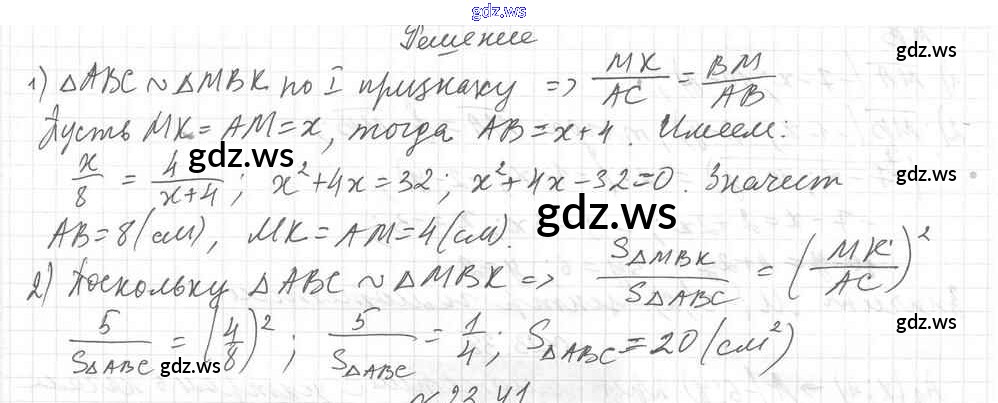 gdz.ws
Решение
gdz.ws
1) △ABC ~ △MBK по I признаку => MK/AC = BM/AB
Пусть MK = AM = x, тогда AB = x+4. Имеем:
gdz.ws
x/8 = 4/(x+4); x²+4x=32; x²+4x-32=0. Значит
gdz.ws
gdz.ws
AB = 8 (см), MK = AM = 4 (см).
2) Поскольку △ABC ~ △MBK => S△MBK/S△ABC = (MK/AC)²
5/S△ABC = (4/8)²; 5/S△ABC = 1/4; S△ABC = 20 (см²)
gdz.ws
gdz.ws
№ 23.41